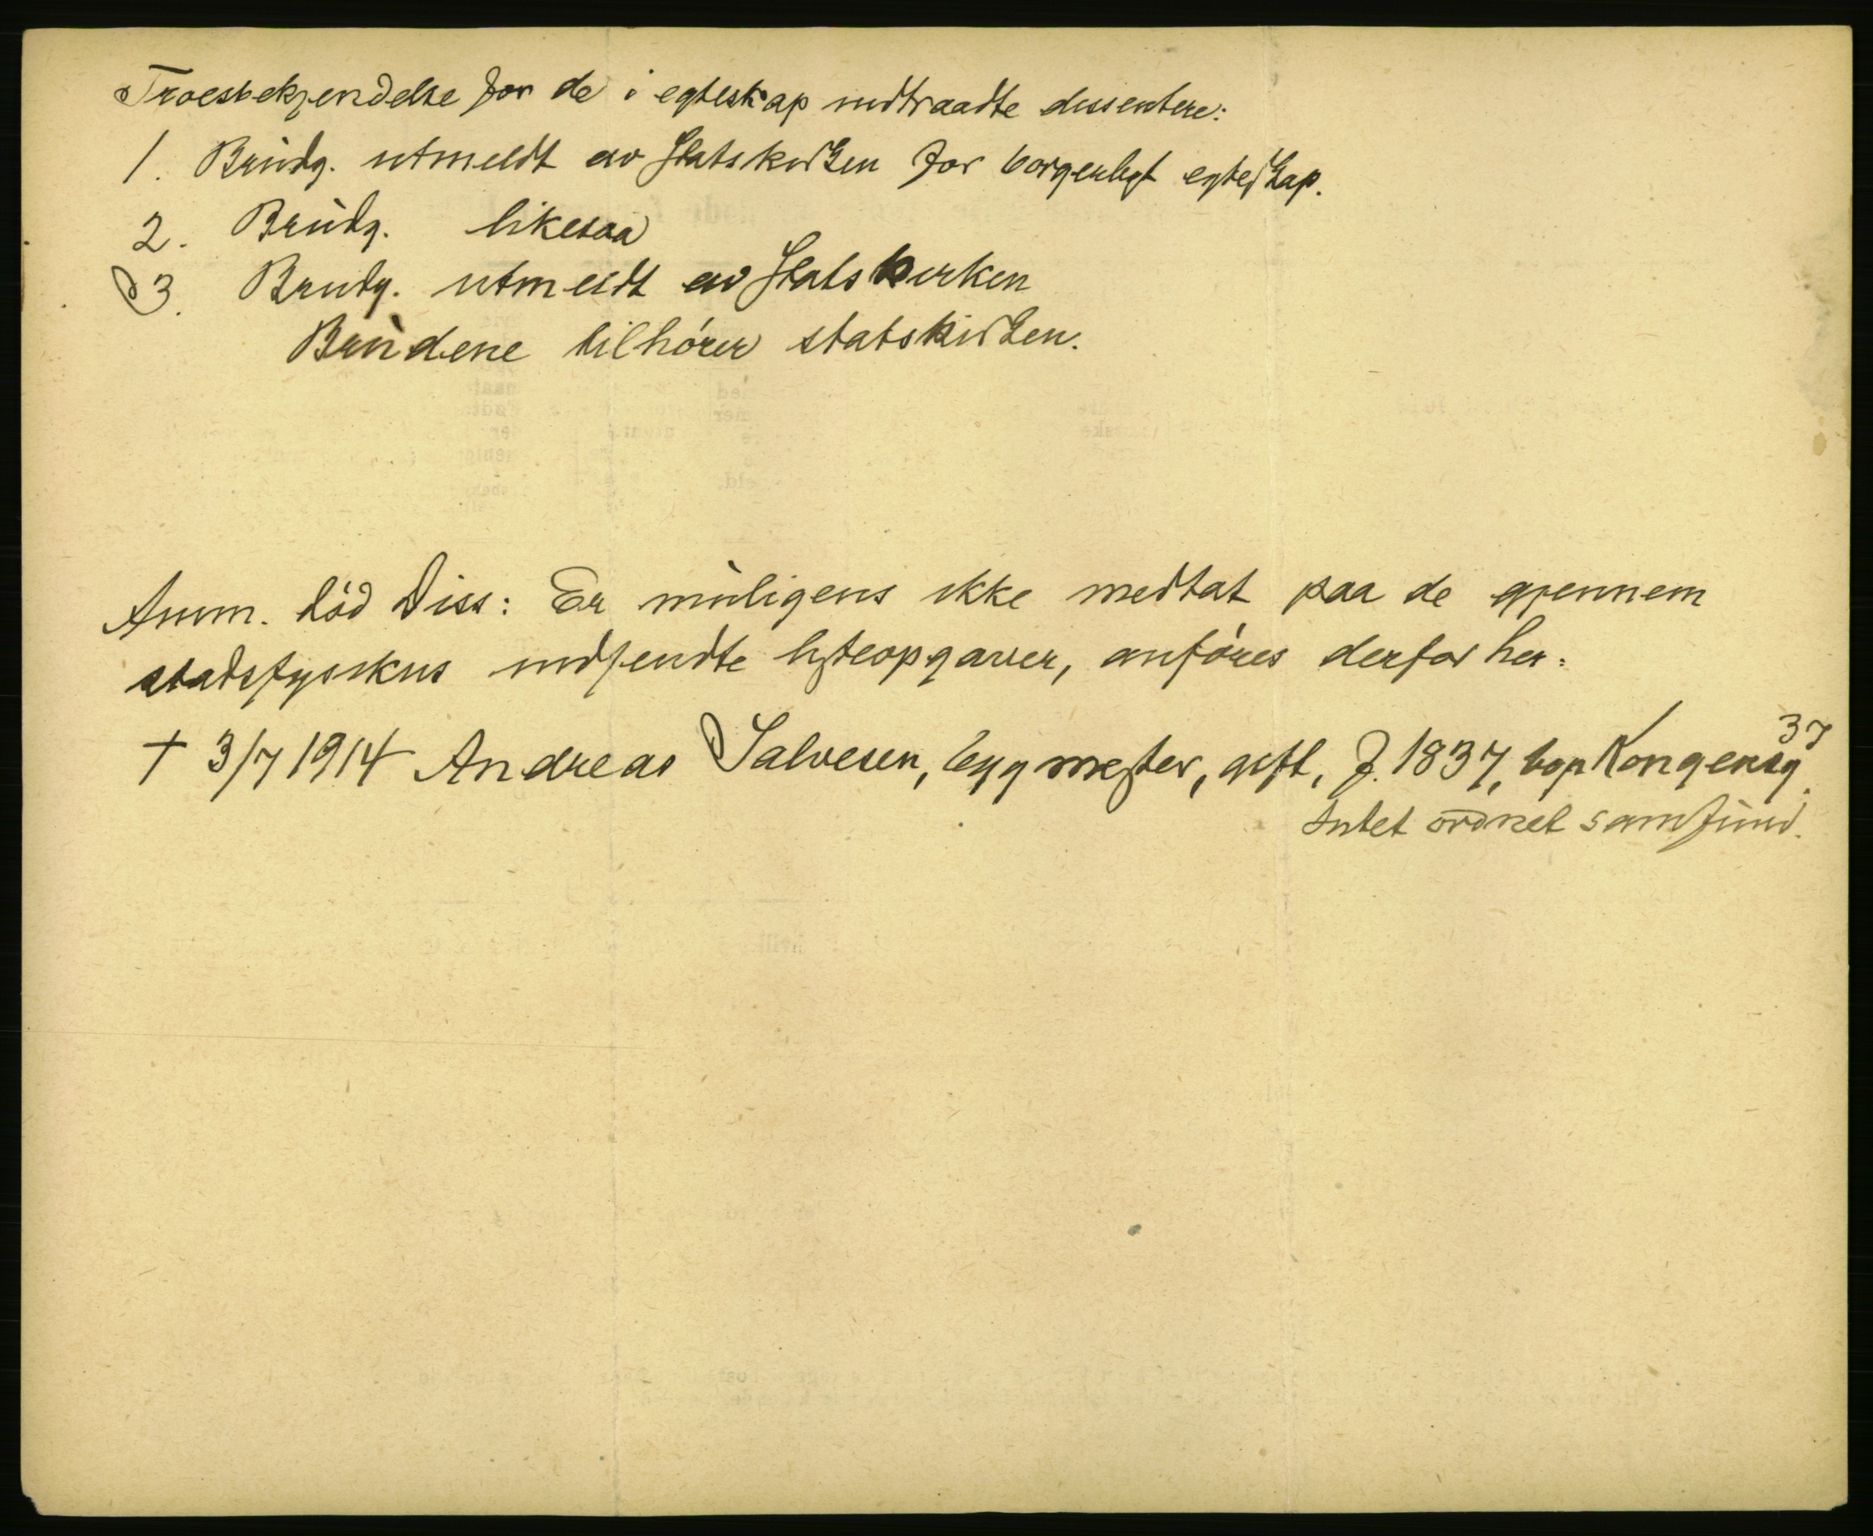 Troesbekjendelse for de i egteskap indtraadte dissentere:
1. Brudg. utmeldt av Statskirken for borgerligt egteskap.
2. Brudg. likesaa
3. Brudg. utmeldt av Statskirken
Brudene tilhører statskirken.
Anm. død Diss: Er muligens ikke medtat paa de gjennem
stadsfysikus indsendte listeopgaver, anføres derfor her:
† 3/7 1914 Andreas Salvesen, bygmester, gift, f. 1837, bop Kongensg. 37
Intet ordnet samfund.